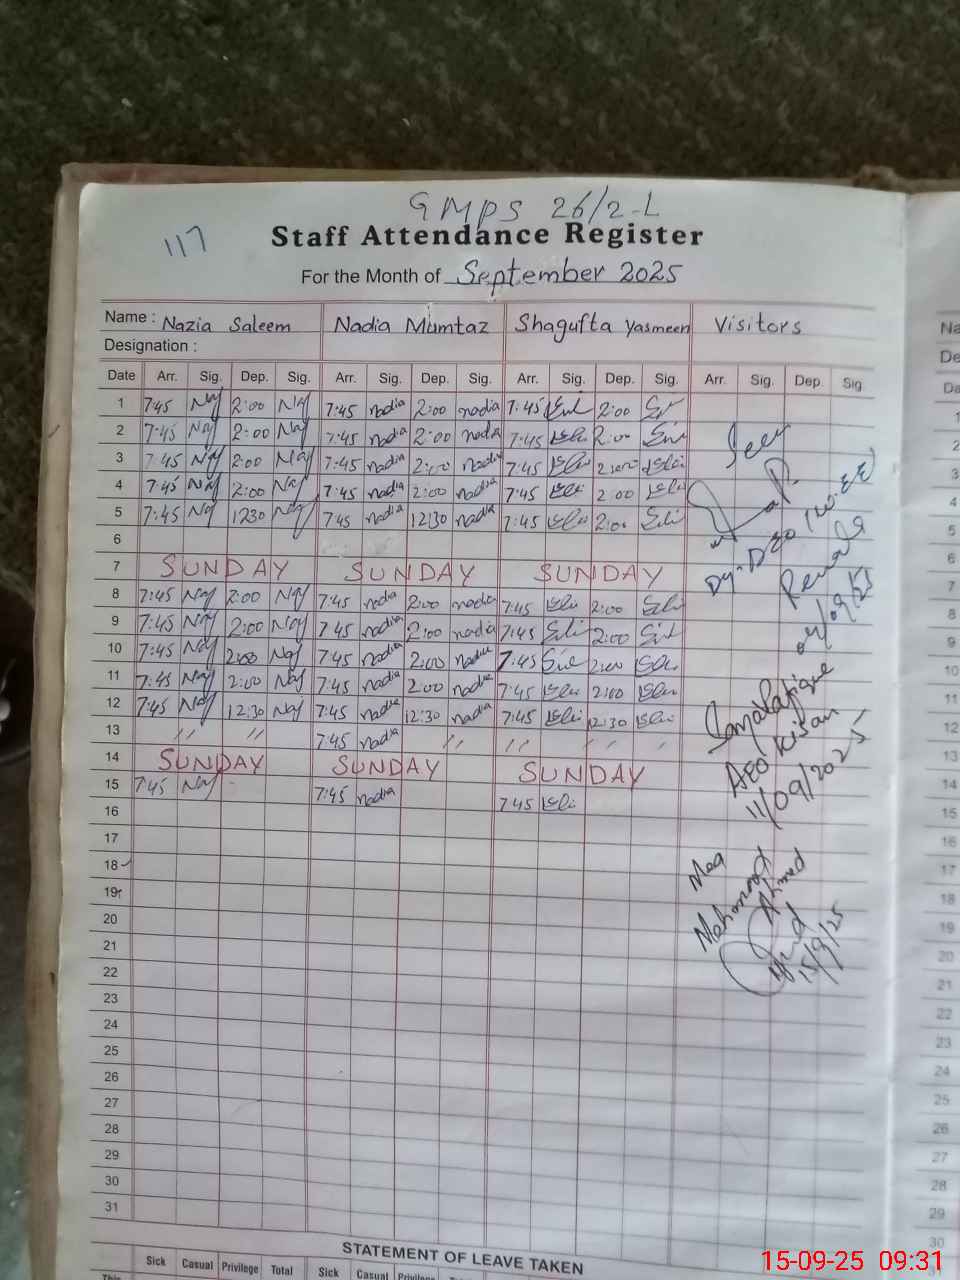 GMPS 26/2-L
117
Staff Attendance Register
For the Month of September 2025
Name : Nazia Saleem Nadia Mumtaz Shagufta Yasmeen Visitors
Designation :
Date Arr. Sig. Dep. Sig. Arr. Sig. Dep. Sig. Arr. Sig. Dep. Sig. Arr. Sig. Dep. Sig.
1 7:45 Naz 2:00 Naz 7:45 nadia 2:00 nadia 7:45 2:00
2 7:45 Naz 2:00 Naz 7:45 nadia 2:00 nadia 7:45 2:00
3 7:45 Naz 2:00 Naz 7:45 nadia 2:00 nadia 7:45 2:00
4 7:45 Naz 2:00 Naz 7:45 nadia 2:00 nadia 7:45 2:00
5 7:45 Naz 12:30 Naz 7:45 nadia 12:30 nadia 7:45 2:00
6
7 SUNDAY SUNDAY SUNDAY
8 7:45 Naz 2:00 Naz 7:45 nadia 2:00 nadia 7:45 2:00
9 7:45 Naz 2:00 Naz 7:45 nadia 2:00 nadia 7:45 2:00
10 7:45 Naz 2:00 Naz 7:45 nadia 2:00 nadia 7:45 2:00
11 7:45 Naz 2:00 Naz 7:45 nadia 2:00 nadia 7:45 2:00
12 7:45 Naz 12:30 Naz 7:45 nadia 12:30 nadia 7:45 12:30
13 " " 7:45 nadia " " " "
14 SUNDAY SUNDAY SUNDAY
15 7:45 Naz 7:45 nadia 7:45
16
17
18
19
20
21
22
23
24
25
26
27
28
29
30
31
Seen
Dy. DEO (W.EE)
Renala
AEO Kisan
11/09/2025
Mea
Mahmood Ahmed
15/9/25
STATEMENT OF LEAVE TAKEN
Sick Casual Privilege Total Sick Casual
15-09-25 09:31